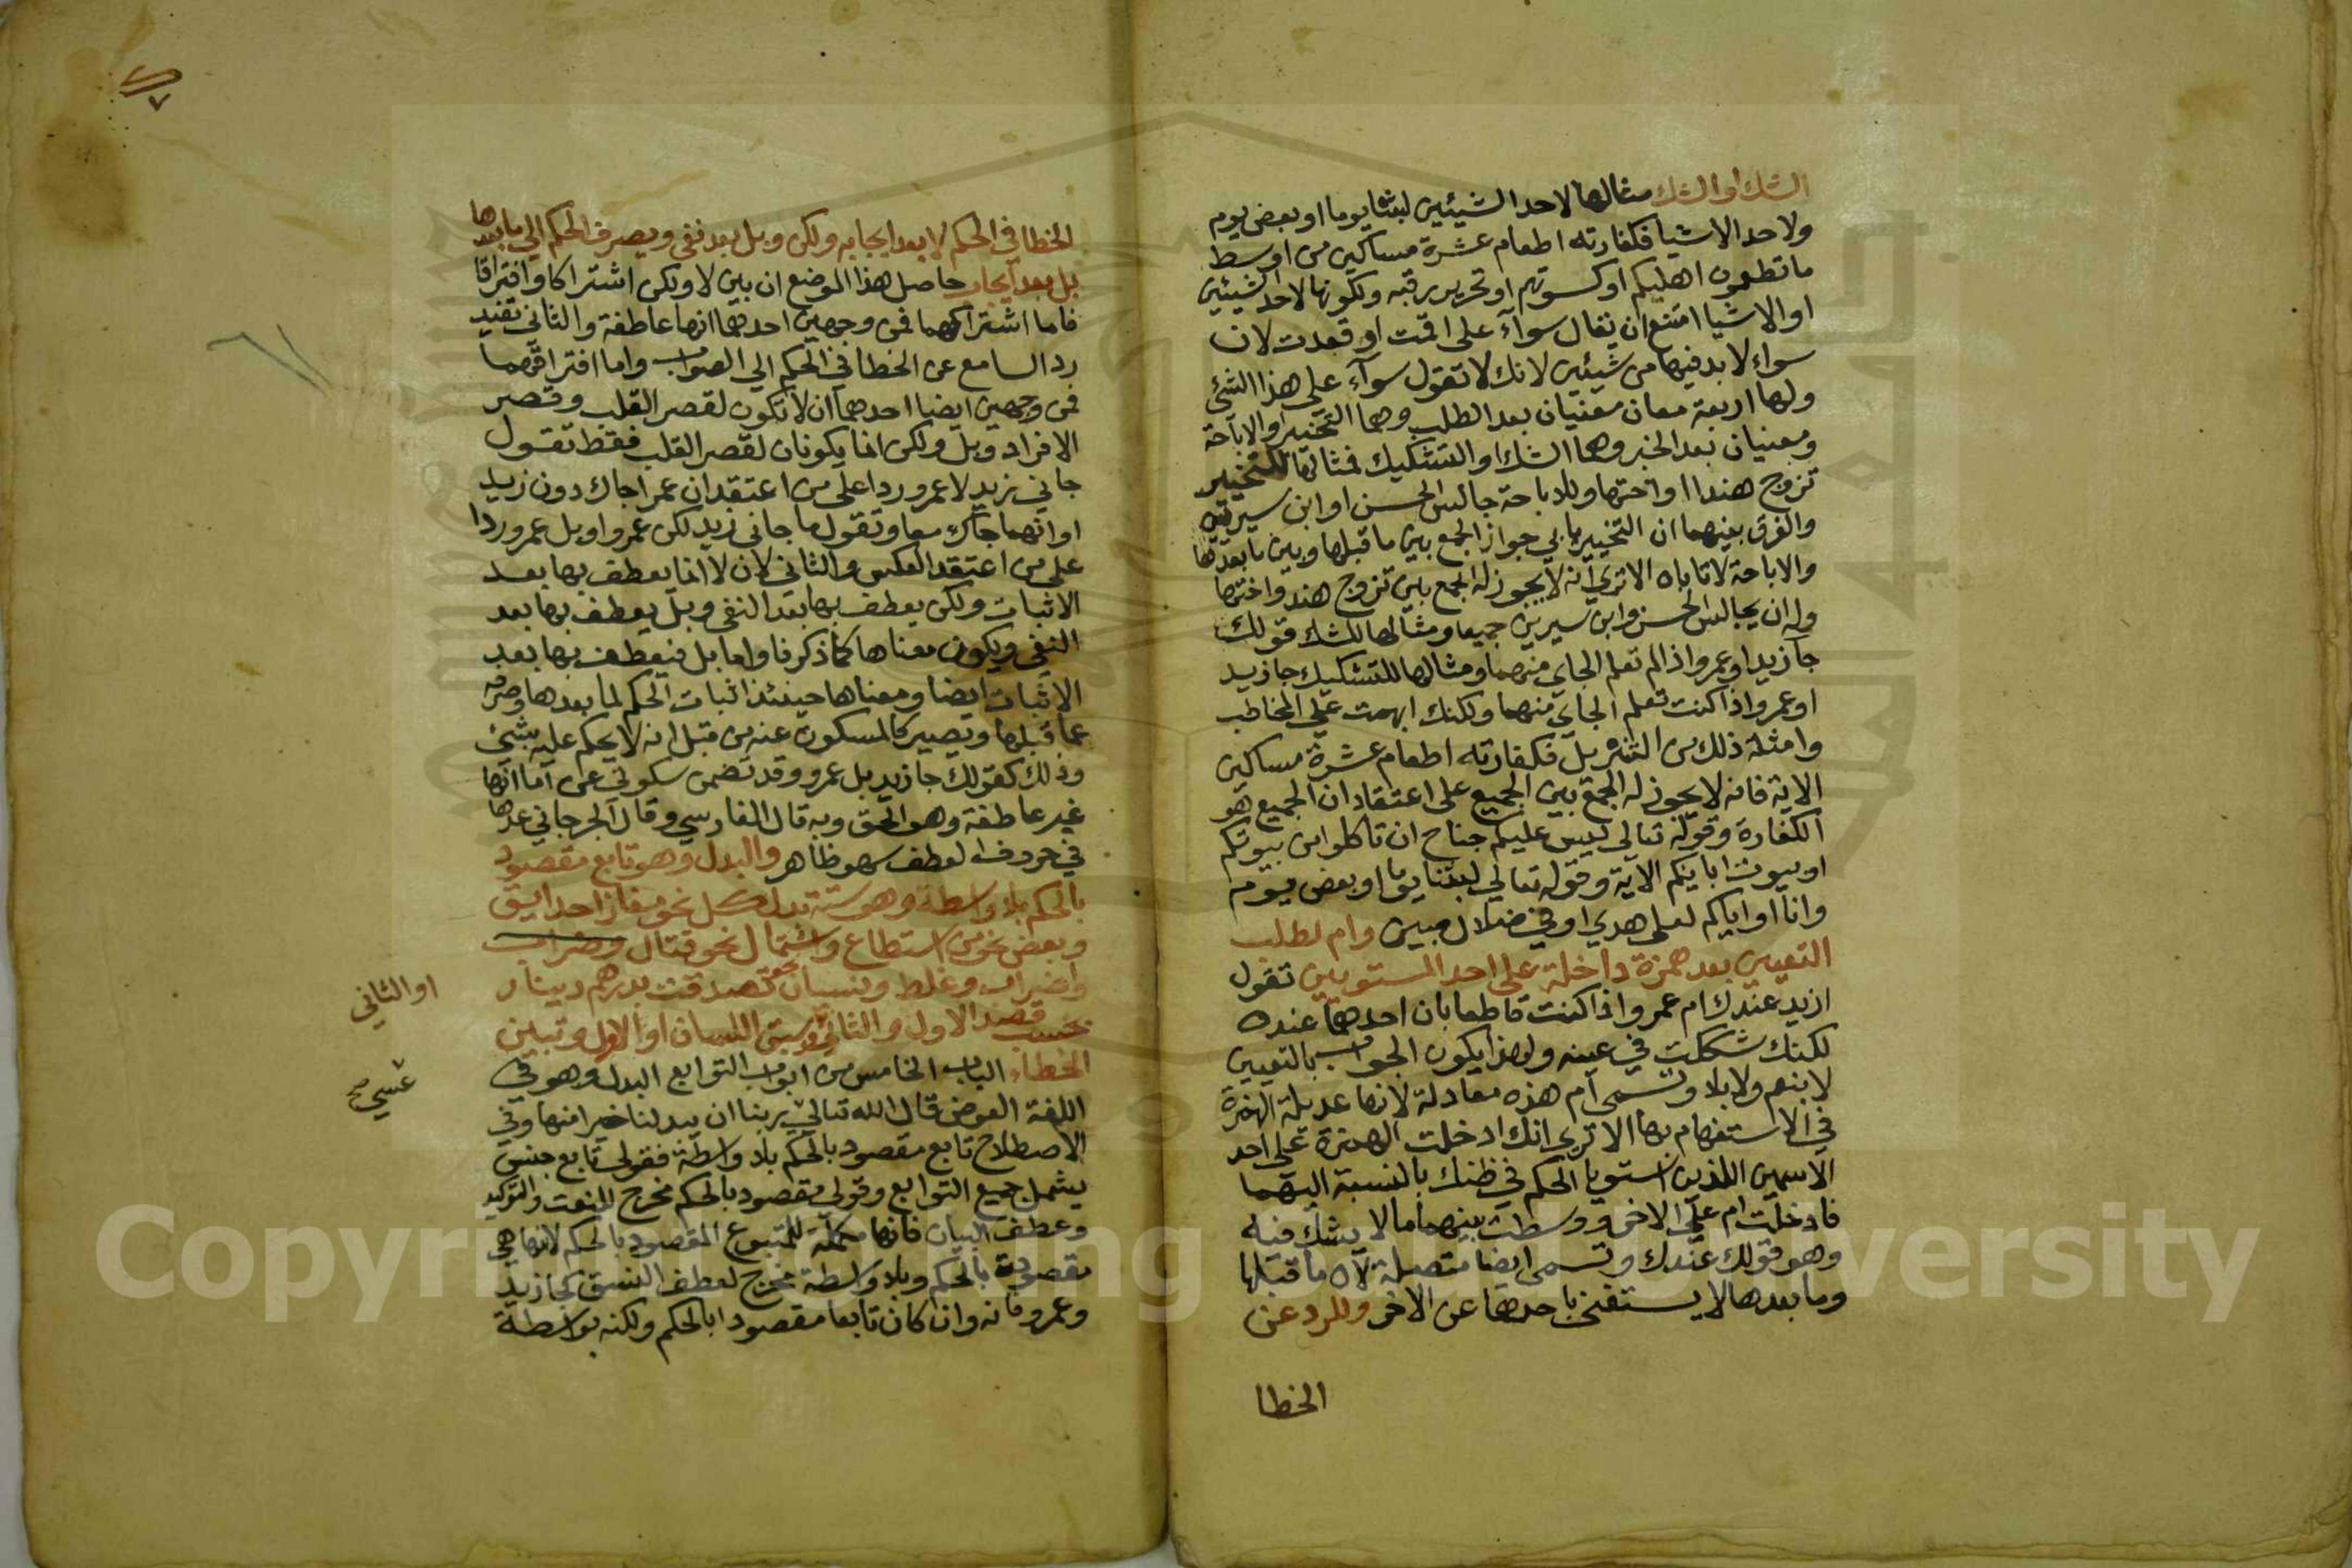 الشك او الشك مثالها لاحد الشيئين لبثنا يوما او بعض يوم
ولاحد الاشيا فكفارته اطعام عشرة مساكين من اوسط
ما تطعمون اهليكم او كسوتهم او تحرير رقبه ولكونها لاحد الشيئين
او الاشيا امتنع ان يقال سوآء على اقمت او قعدت لان
سواء لا بد فيها من شيئين لانك لا تقول سوآء على هذا الشئ
ولها اربعة معان معنيان بعد الطلب وهما التخيير او الاباحة
ومعنيان بعد الخبر وهما الشك او التشكيك فمثالها للتخيير
تزوج هندا او اختها وللاباحة جالس الحسن او ابن سيرين
والفرق بينهما ان التخيير يابي جواز الجمع بين ما قبلها وبين ما بعدها
والاباحة لا تاباه الا تري انه لا يجوز له الجمع بين تزوج هند واختها
وله ان يجالس الحسن وابن سيرين جميعا ومثالها للشك قولك
جا زيد او عمرو اذا لم تعلم الجاي منهما ومثالها للتشكيك جا زيد
او عمرو اذا كنت تعلم الجاي منهما ولكنك ابهمت علي المخاطب
وامثلة ذلك من التنزيل فكفارته اطعام عشرة مساكين
الاية فانه لا يجوز له الجمع بين الجميع على اعتقاد ان الجميع هو
الكفارة وقوله تعالي ليس عليكم جناح ان تاكلوا من بيوتكم
او بيوت ابايكم الاية وقوله تعالي لبثنا يوما او بعض يوم
وانا او اياكم لعلى هدي او في ضلال مبين وام لطلب
التعيين بعد همزة داخلة على احد المستويين تقول
ازيد عندك ام عمرو اذا كنت قاطعا بان احدهما عنده
لكنك شككت في عينه ولهذا يكون الجواب بالتعيين
لا بنعم ولا بلا وتسمى ام هذه معادلة لانها عديلة الهمزة
في الاستفهام بها الا تري انك ادخلت الهمزة على احد
الاسمين اللذين استويا الحكم في ظنك بالنسبة اليهما
فادخلت ام علي الاخر ووسطت بينهما ما لا يشك فيه
وهو قولك عندك وتسمى ايضا متصلة لان ما قبلها
وما بعدها لا يستغني باحدهما عن الاخر وللرد عن
الخطا
الخطا في الحكم لا بعد ايجابه ولكن وبل بعد نفي ويصرف الحكم الي ما بعدها
بل بعد ايجاب حاصل هذا الموضع ان بين لا ولكن اشتراكا وافتراقا
فاما اشتراكهما فمن وجهين احدهما انها عاطفة والثاني تفيد
رد السامع عن الخطا في الحكم الي الصواب واما افتراقهما
فمن وجهين ايضا احدهما ان لا تكون لقصر القلب وقصر
الافراد وبل ولكن انما يكونان لقصر القلب فقط تقول
جاني زيد لا عمرو ردا على من اعتقد ان عمرا جاك دون زيد
او انهما جاك معا وتقول ما جاني زيد لكن عمرو او بل عمرو ردا
على من اعتقد العكس والثاني لان لا انما يعطف بها بعد
الاثبات ولكن يعطف بها بعد النفي وبل يعطف بها بعد
النفي ويكون معناها كما ذكرنا واما بل فيعطف بها بعد
الاثبات ايضا ومعناها حينئذ اثبات الحكم لما بعدها وصرفه
عما قبلها ويصير كالمسكوت عنه من قبل انه لا يحكم عليه بشئ
وذلك كقولك جا زيد بل عمرو وقد تضمن سكوتي عن اما انها
غير عاطفة وهو الحق وبه قال الفارسي وقال الجرجاني عدها
في حروف العطف سهو ظاهر والبدل وهو تابع مقصود
بالحكم بلا واسطة وهو ستة بدل كل نحو مفازا حدايق
وبعض نحو من استطاع واشتمال نحو قتال وضراب
واضراب وغلط ونسيان نحو تصدقت بدرهم دينار
بحسب قصد الاول والثاني وسبق اللسان او الاول وتبين
الخطاء الباب الخامس من ابواب التوابع البدل وهو في
اللغة العوض قال الله تعالي ربنا ان يبدلنا خيرا منها وفي
الاصطلاح تابع مقصود بالحكم بلا واسطة فقولي تابع جنس
يشمل جميع التوابع وقولي مقصود بالحكم مخرج للنعت والتوكيد
وعطف البيان فانها مكملة للمتبوع المقصود بالحكم لا انها هي
مقصودة بالحكم وبلا واسطة مخرج لعطف النسق كجا زيد
وعمرو فانه وان كان تابعا مقصودا بالحكم ولكنه بواسطة
او الثاني
عسي صح